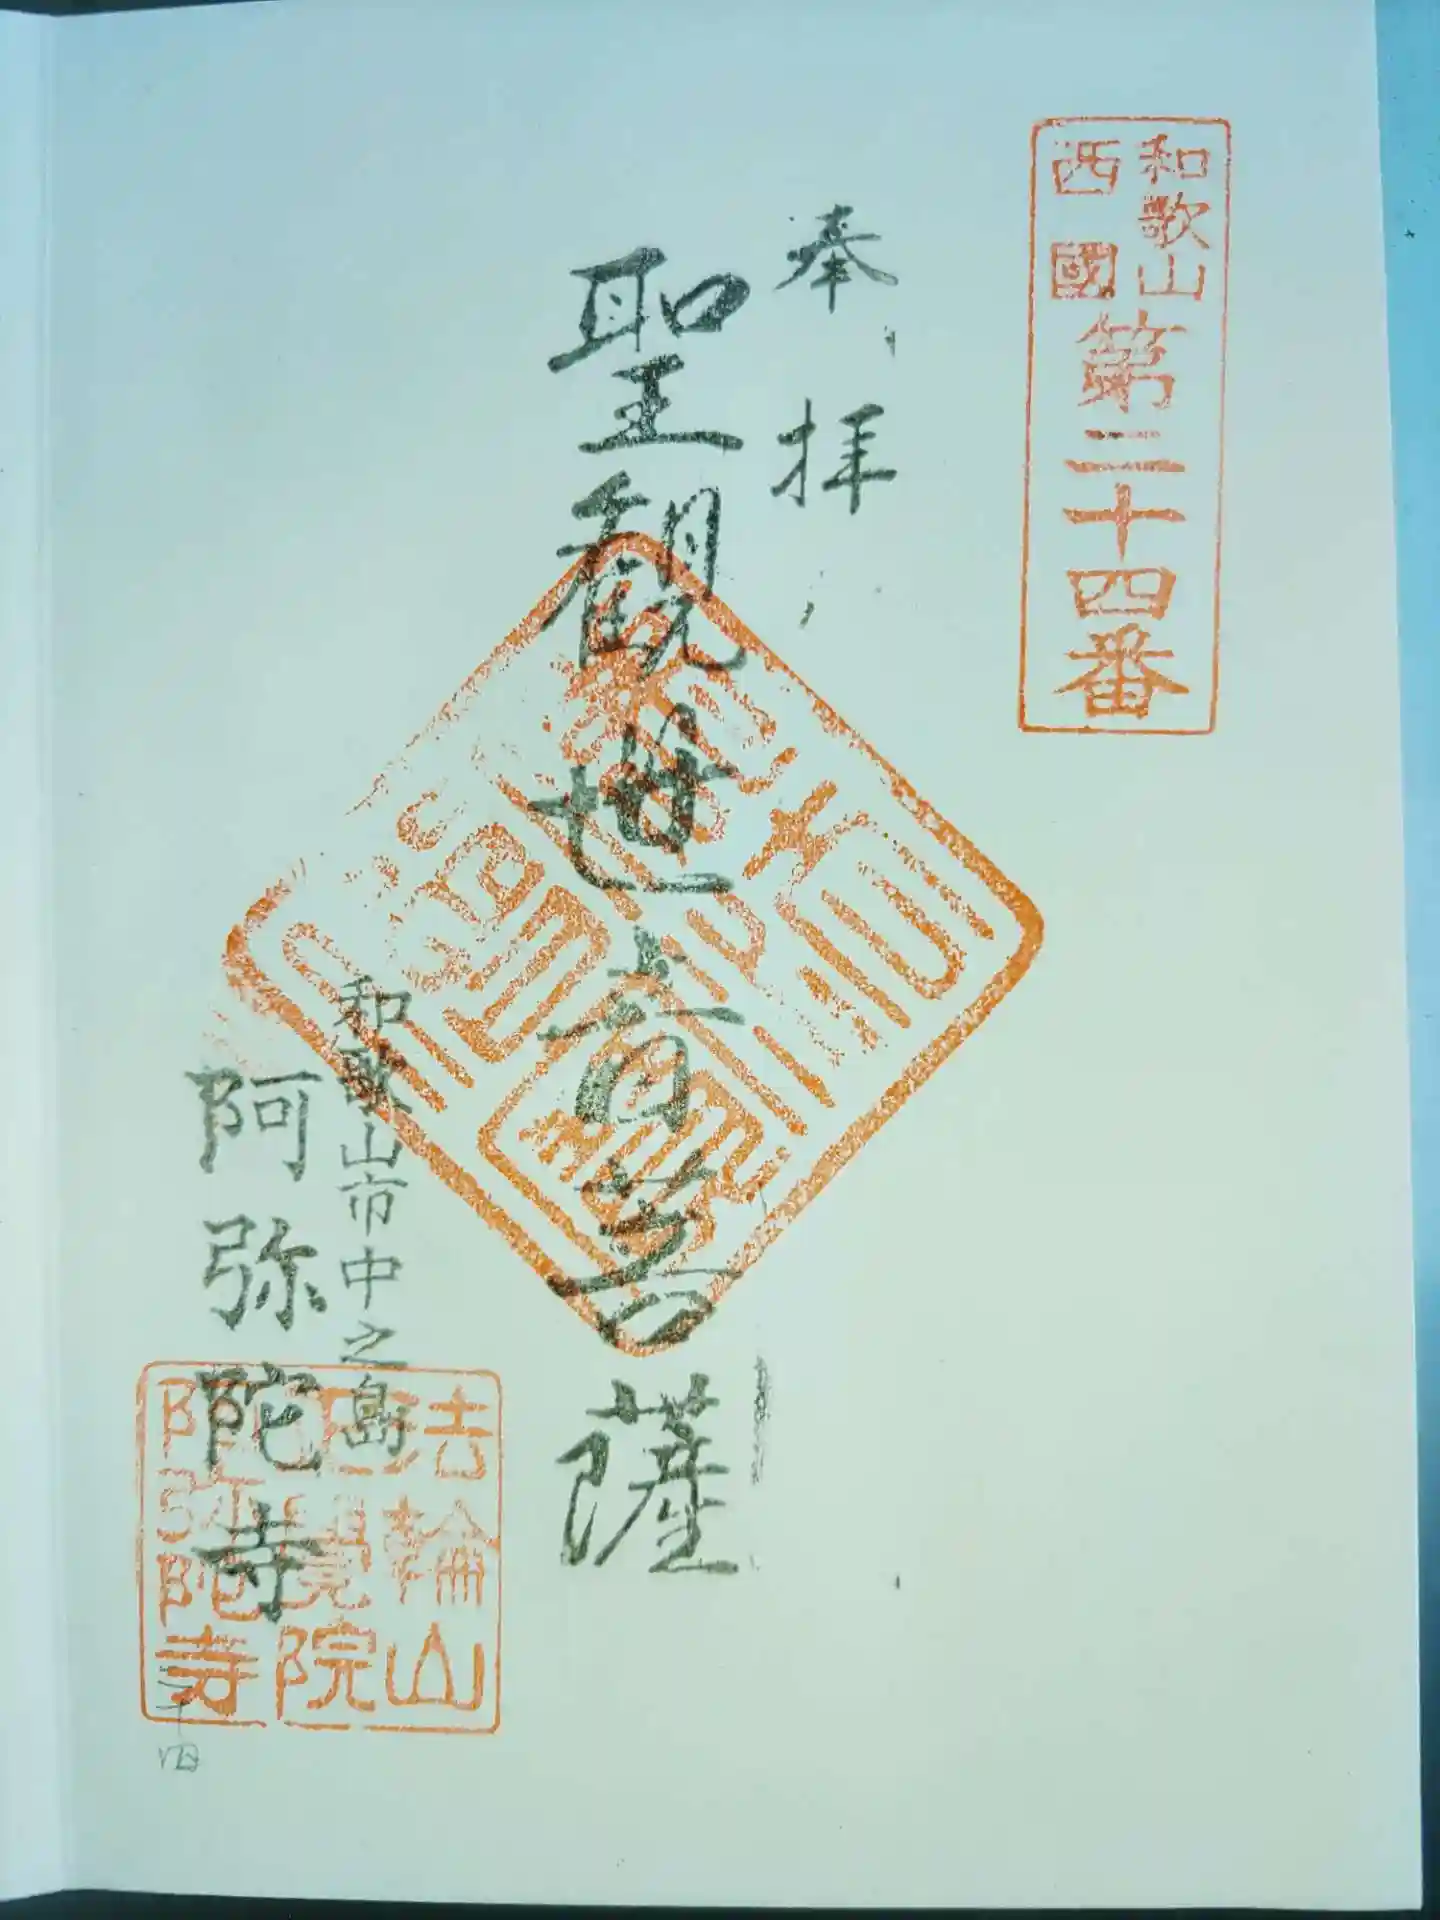 和歌山
西國
第二十四番
奉拝
聖観世音菩薩
和歌山市中之島
阿弥陀寺
法輪山
覺院
阿弥陀寺